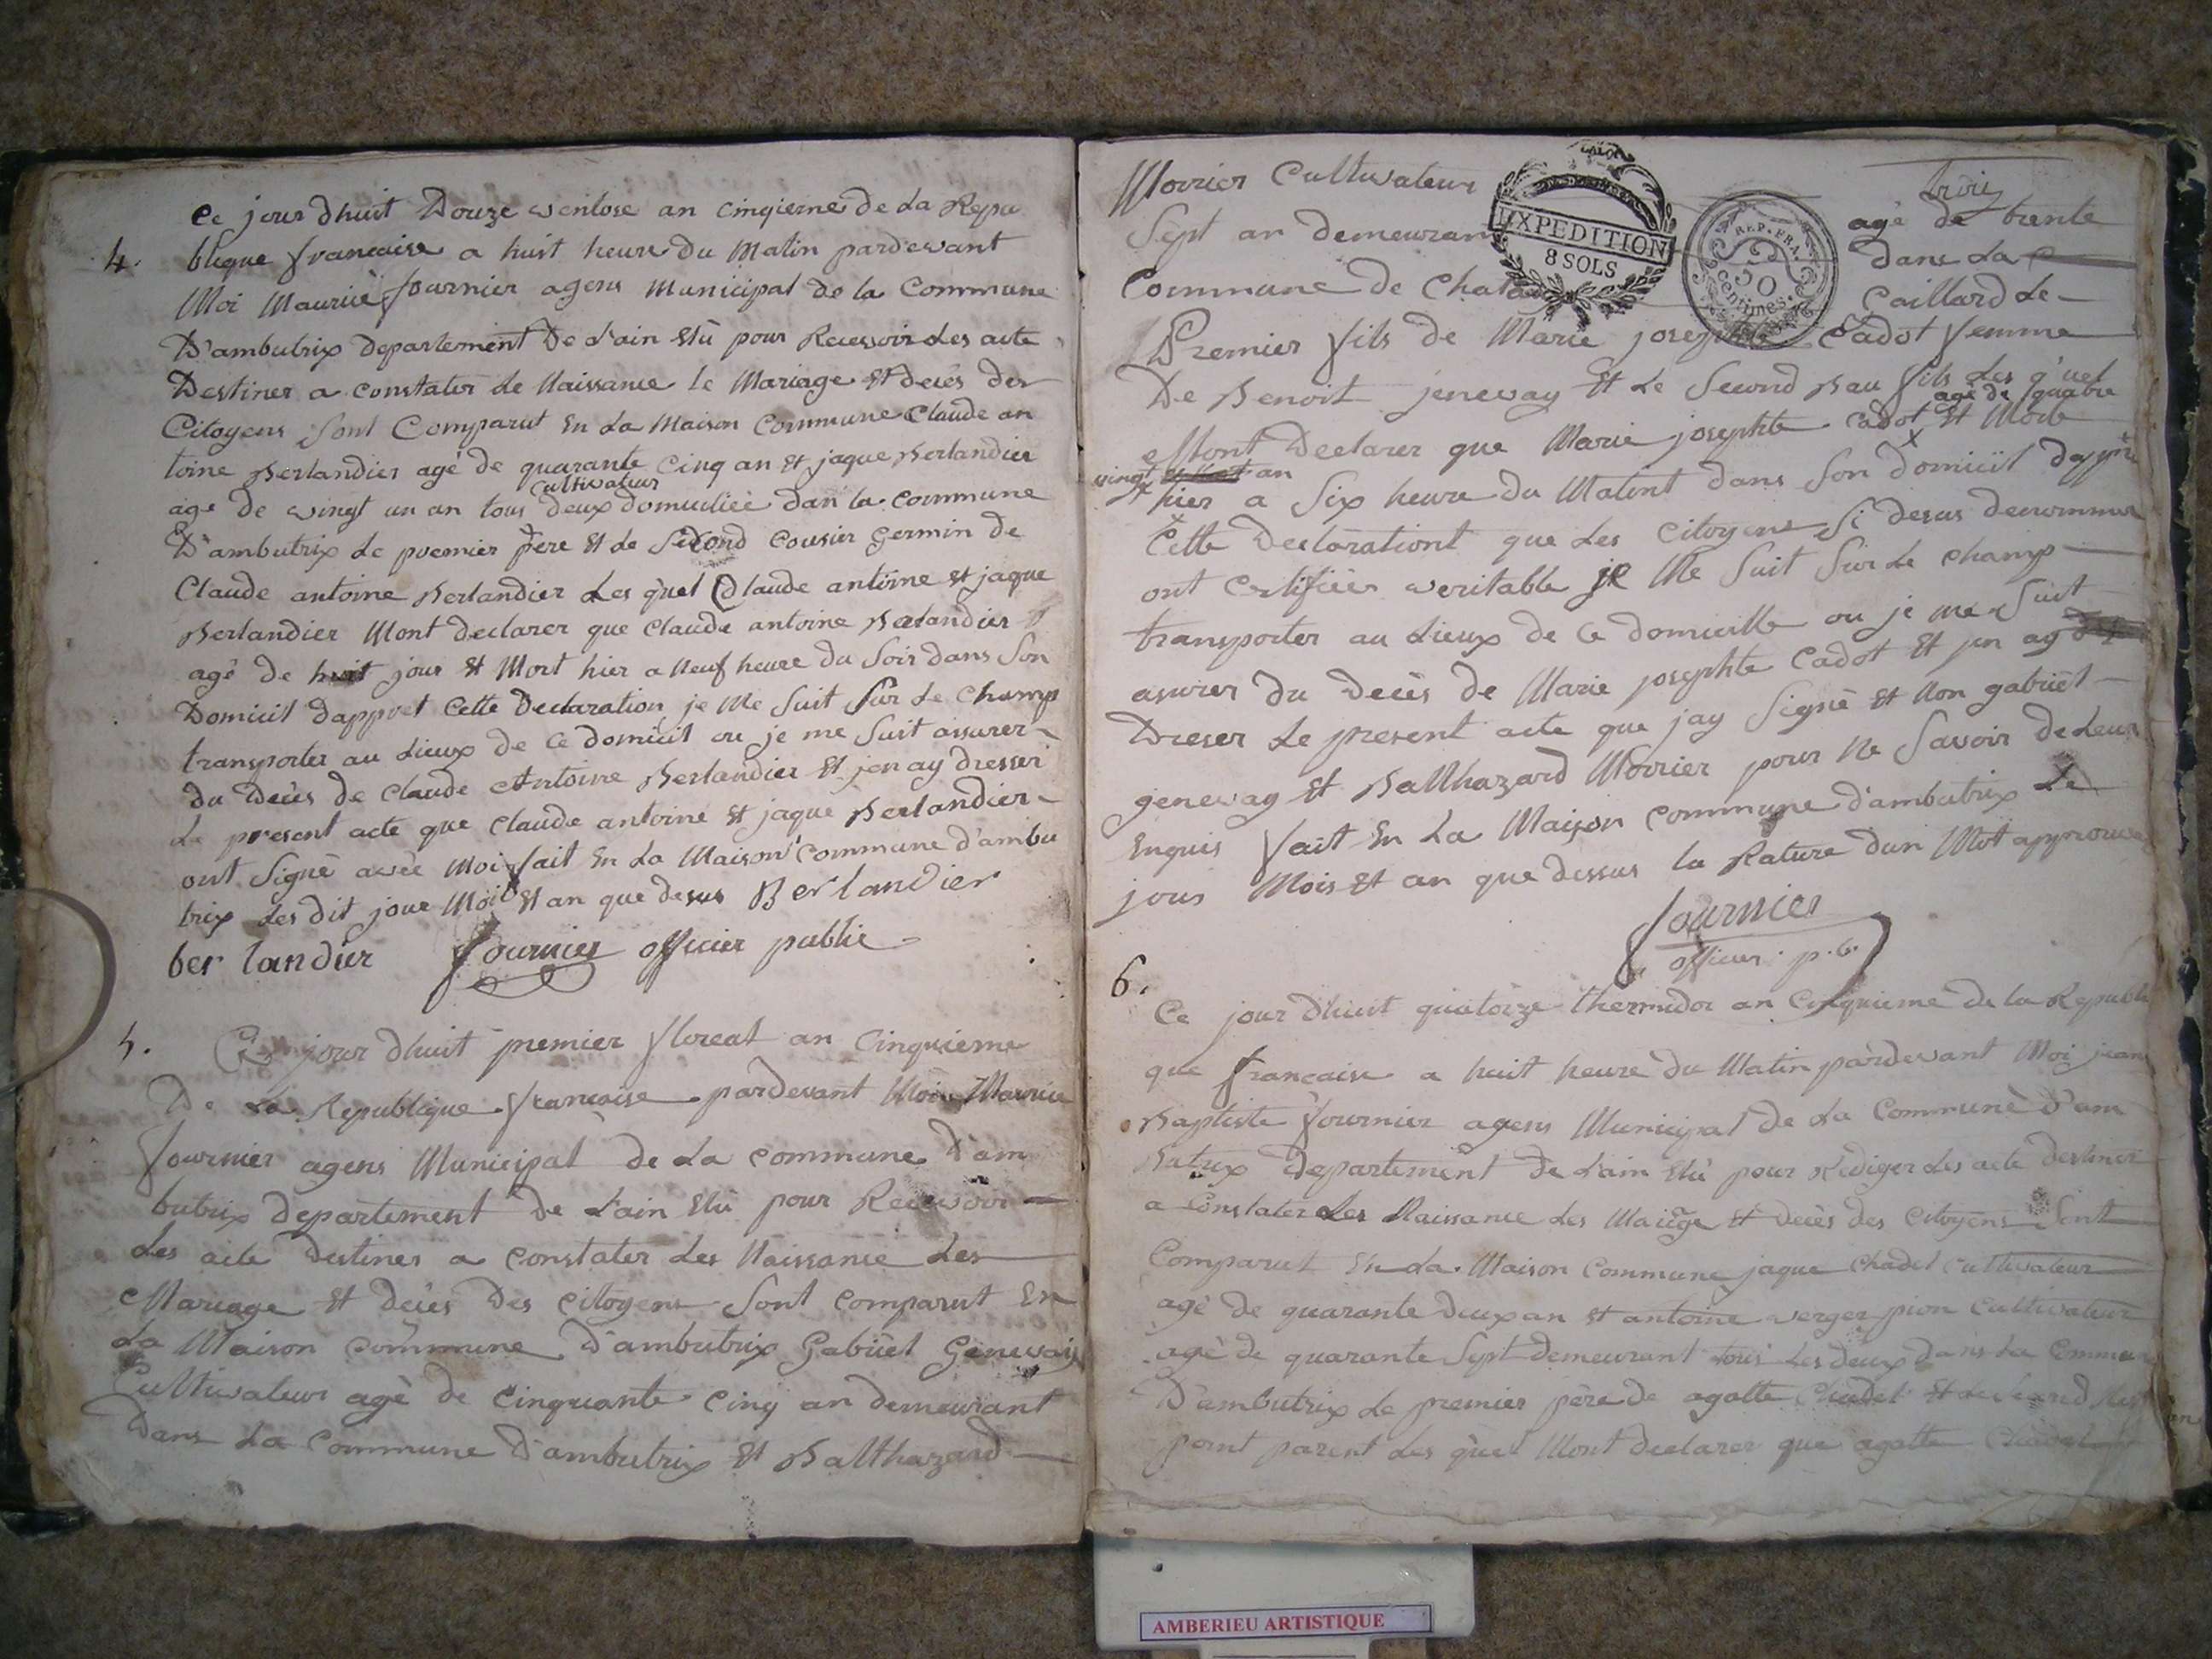 4.
Ce jour dhuit Douze ventose an cinqieme de La Repu
blique francaise a huit heure du Matin pardevant
Moi Maurice fournier agens municipal de la Commune
D'ambutrix departement De L'ain Elü pour Recevoir Les acte
Destiner a constater Le Naissance Le Mariage Et decés des
Citoyens Sont Comparut En La Maison Commune Claude an
toine Berlandier agé de quarante Cinq an Et jaque Berlandier
cultivateur
age de vingt un an tous deux domiciliée dan la commune
D'ambutrix Le premier pere Et Le Second Cousier Germin de
Claude antoine Berlandier Les q'uel Claude antoine Et jaque
Berlandier Mont declarer que Claude antoine Berlandier
agé de huit jour Et Mort hier a Neuf heure du Soir dans Son
Domicil dappret Cette Declaration je Me Suit Sur Le Champ
transporter au Lieux de Ce domicil ou je me Suit assurer
du Decés de Claude Antoine Berlandier Et jen ay dresser
Le present acte que Claude antoine Et jaque Berlandier
ont Signé avec Moi fait En La Maison Commune d'ambu
trix Les dit jour Moi Et an que desus Berlandier
ber landier fournier officier public
5.
Ce jour dhuit premier floreal an Cinquieme
De La Republique francaise pardevant Moi Maurice
fournier agens Municipal de La commune D'am
butrix departement De L'ain Elü pour Recevoir
Les acte Destiner a constater Les Naissance Les
Mariage Et decés Des Citoyens Sont comparut En
La Maison Commune D'ambutrix Gabriel Genevay
Cultivateur agé de Cinquante Cinq an demeurant
Dans La Commune D'ambutrix Et Balthazard
trois
Morrier Cultivateur agé de trente
Sept an demeurant dans La
Commune de Caillard Le
LALOI
EXPEDITION
8 SOLS
REP. FRA.
50
centimes.
Premier fils de Marie josephte Cadot femme
De Benoit jenevay Et Le Second Bau fils Les q'uel
agé de quatre
Mont Declarer que Marie josephte Cadot Et Morte
vingt an
hier a Six heure du Matint dans Son Domiciil dappré
Cette Declarationt que Les Citoyens Si desus denommer
ont Certifiéer veritable je Me Suit Sur Le champ
transporter au Lieux de Ce domicille ou je me Suit
asurer du Decés de Marie josephte Cadot Et jen ay
Dreser Le present acte que jay Signé Et Non gabriël
genevay Et Balthazard Morrier pour Ne Savoir de Leur
Enquis fait En La Maison commune d'ambutrix Le
jour Mois Et an que dessus la Rature dun Mot approuvé
fournier
officier p.c.
6.
Ce jour Dhuit quatorze thermidor an Cinquieme de la Republi
que francaise a huit heure du Matin pardevant Moi jean
Baptiste fournier agens Municipal De La Commune D'am
Butrix Departement De L'ain Elü pour Rediger Les acte destiner
a constater Les Naissance Les Maiége Et decés des Citoyens Sont
Comparut En La Maison Commune jaque Chadel Cultivateur
agé de quarante deux an Et antoine verger pion Cultivateur
agé de quarante Sept demeurant tous Les deux dans La Commun
D'ambutrix Le premier père de agatte Chadel Et Le Second
point parent Les q'uel Mont declarer que agatte Chadel
AMBERIEU ARTISTIQUE